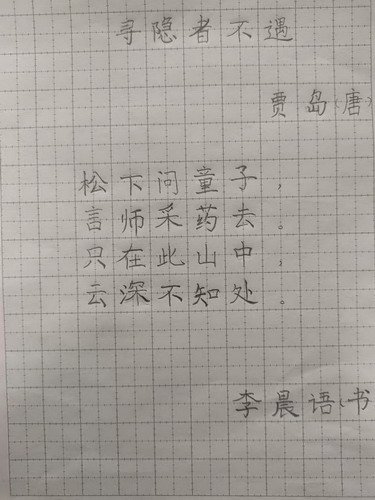 寻隐者不遇
贾岛(唐)
松下问童子，
言师采药去。
只在此山中，
云深不知处。
李晨语(书